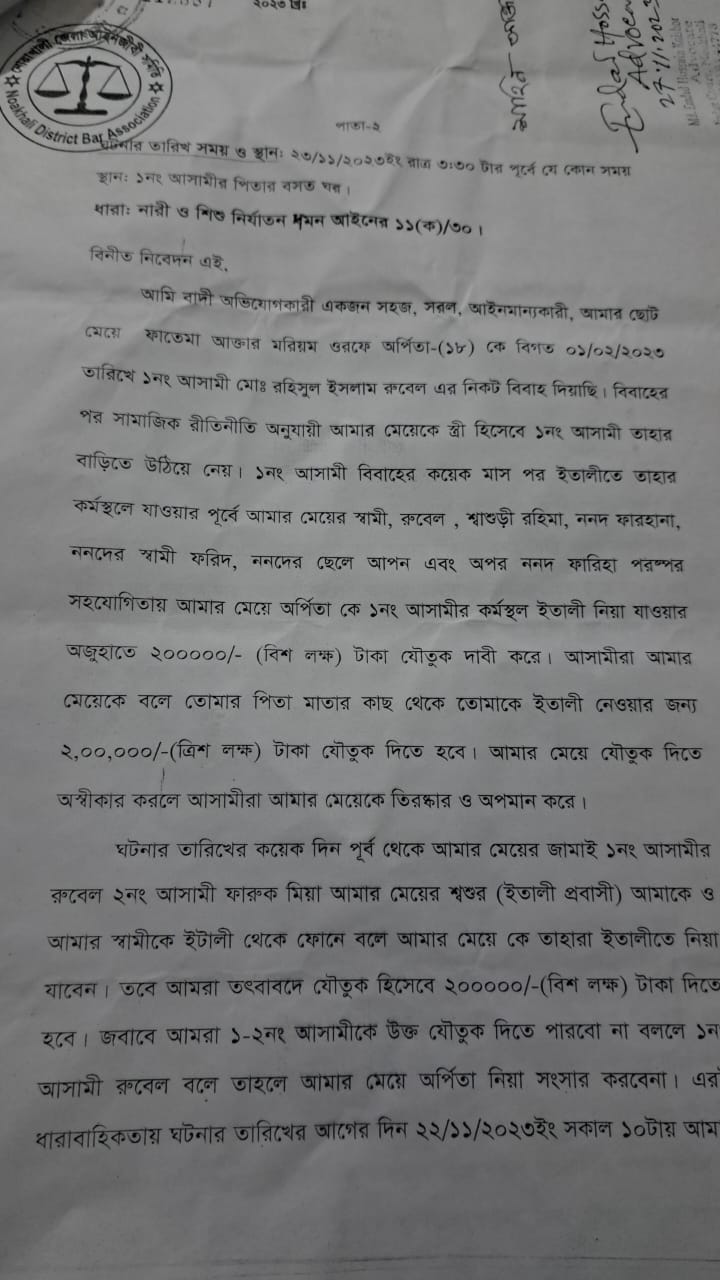 ২০২৩ খ্রিঃ
নোয়াখালী জেলা আইনজীবী সমিতি
Noakhali District Bar Association
Advocate
পাতা-২
ঘটনার তারিখ সময় ও স্থান: ২৩/১১/২০২৩ইং রাত ৩:৩০ টার পূর্বে যে কোন সময়
স্থান: ১নং আসামীর পিতার বসত ঘর।
ধারা: নারী ও শিশু নির্যাতন দমন আইনের ১১(ক)/৩০।
বিনীত নিবেদন এই,
আমি বাদী অভিযোগকারী একজন সহজ, সরল, আইনমান্যকারী, আমার ছোট
মেয়ে ফাতেমা আক্তার মরিয়ম ওরফে অর্পিতা-(১৮) কে বিগত ০১/০২/২০২৩
তারিখে ১নং আসামী মোঃ রহিসুল ইসলাম রুবেল এর নিকট বিবাহ দিয়াছি। বিবাহের
পর সামাজিক রীতিনীতি অনুযায়ী আমার মেয়েকে স্ত্রী হিসেবে ১নং আসামী তাহার
বাড়িতে উঠিয়ে নেয়। ১নং আসামী বিবাহের কয়েক মাস পর ইতালীতে তাহার
কর্মস্থলে যাওয়ার পূর্বে আমার মেয়ের স্বামী, রুবেল , শ্বাশুড়ী রহিমা, ননদ ফারহানা,
ননদের স্বামী ফরিদ, ননদের ছেলে আপন এবং অপর ননদ ফারিহা পরষ্পর
সহযোগিতায় আমার মেয়ে অর্পিতা কে ১নং আসামীর কর্মস্থল ইতালী নিয়া যাওয়ার
অজুহাতে ২০০০০০/- (বিশ লক্ষ) টাকা যৌতুক দাবী করে। আসামীরা আমার
মেয়েকে বলে তোমার পিতা মাতার কাছ থেকে তোমাকে ইতালী নেওয়ার জন্য
২,০০,০০০/-(ত্রিশ লক্ষ) টাকা যৌতুক দিতে হবে। আমার মেয়ে যৌতুক দিতে
অস্বীকার করলে আসামীরা আমার মেয়েকে তিরষ্কার ও অপমান করে।
ঘটনার তারিখের কয়েক দিন পূর্ব থেকে আমার মেয়ের জামাই ১নং আসামীর
রুবেল ২নং আসামী ফারুক মিয়া আমার মেয়ের শ্বশুর (ইতালী প্রবাসী) আমাকে ও
আমার স্বামীকে ইটালী থেকে ফোনে বলে আমার মেয়ে কে তাহারা ইতালীতে নিয়া
যাবেন। তবে আমরা তৎবাবদে যৌতুক হিসেবে ২০০০০০/-(বিশ লক্ষ) টাকা দিতে
হবে। জবাবে আমরা ১-২নং আসামীকে উক্ত যৌতুক দিতে পারবো না বললে ১ন
আসামী রুবেল বলে তাহলে আমার মেয়ে অর্পিতা নিয়া সংসার করবেনা। এর
ধারাবাহিকতায় ঘটনার তারিখের আগের দিন ২২/১১/২০২৩ইং সকাল ১০টায় আম